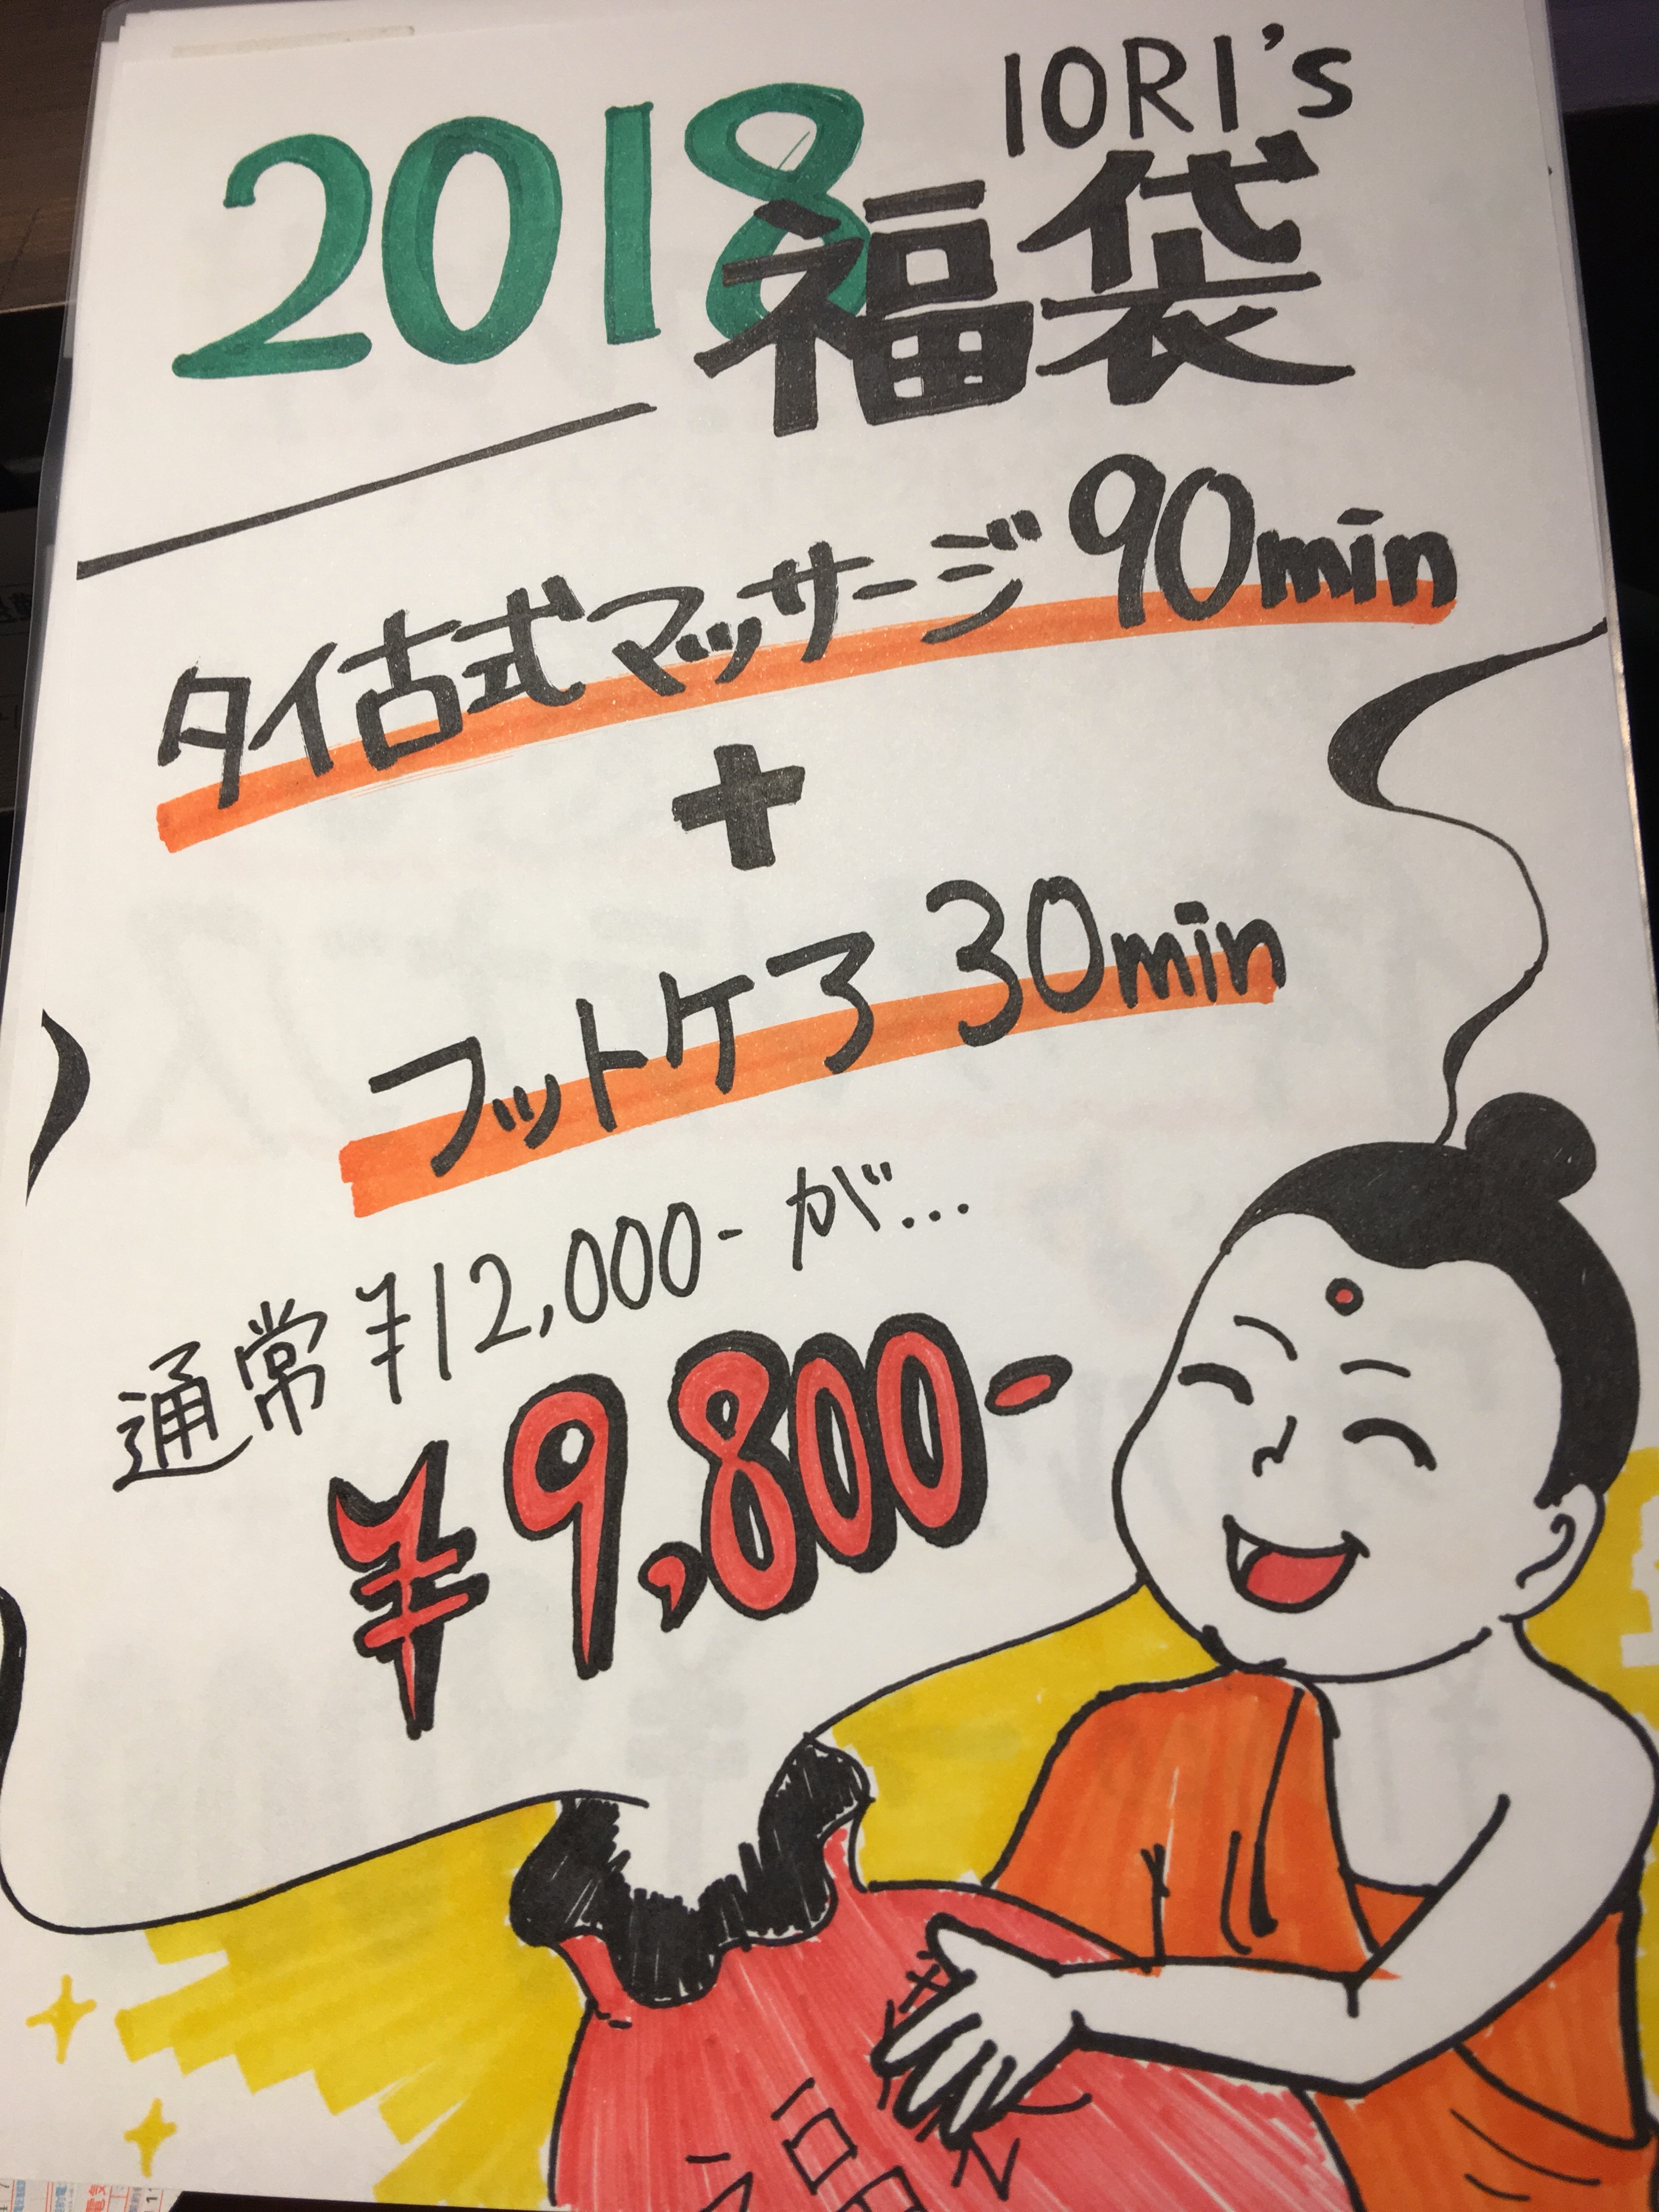 IORI's
2018福袋
タイ古式マッサージ 90min
+
フットケア 30min
通常 ¥12,000- が...
¥9,800-